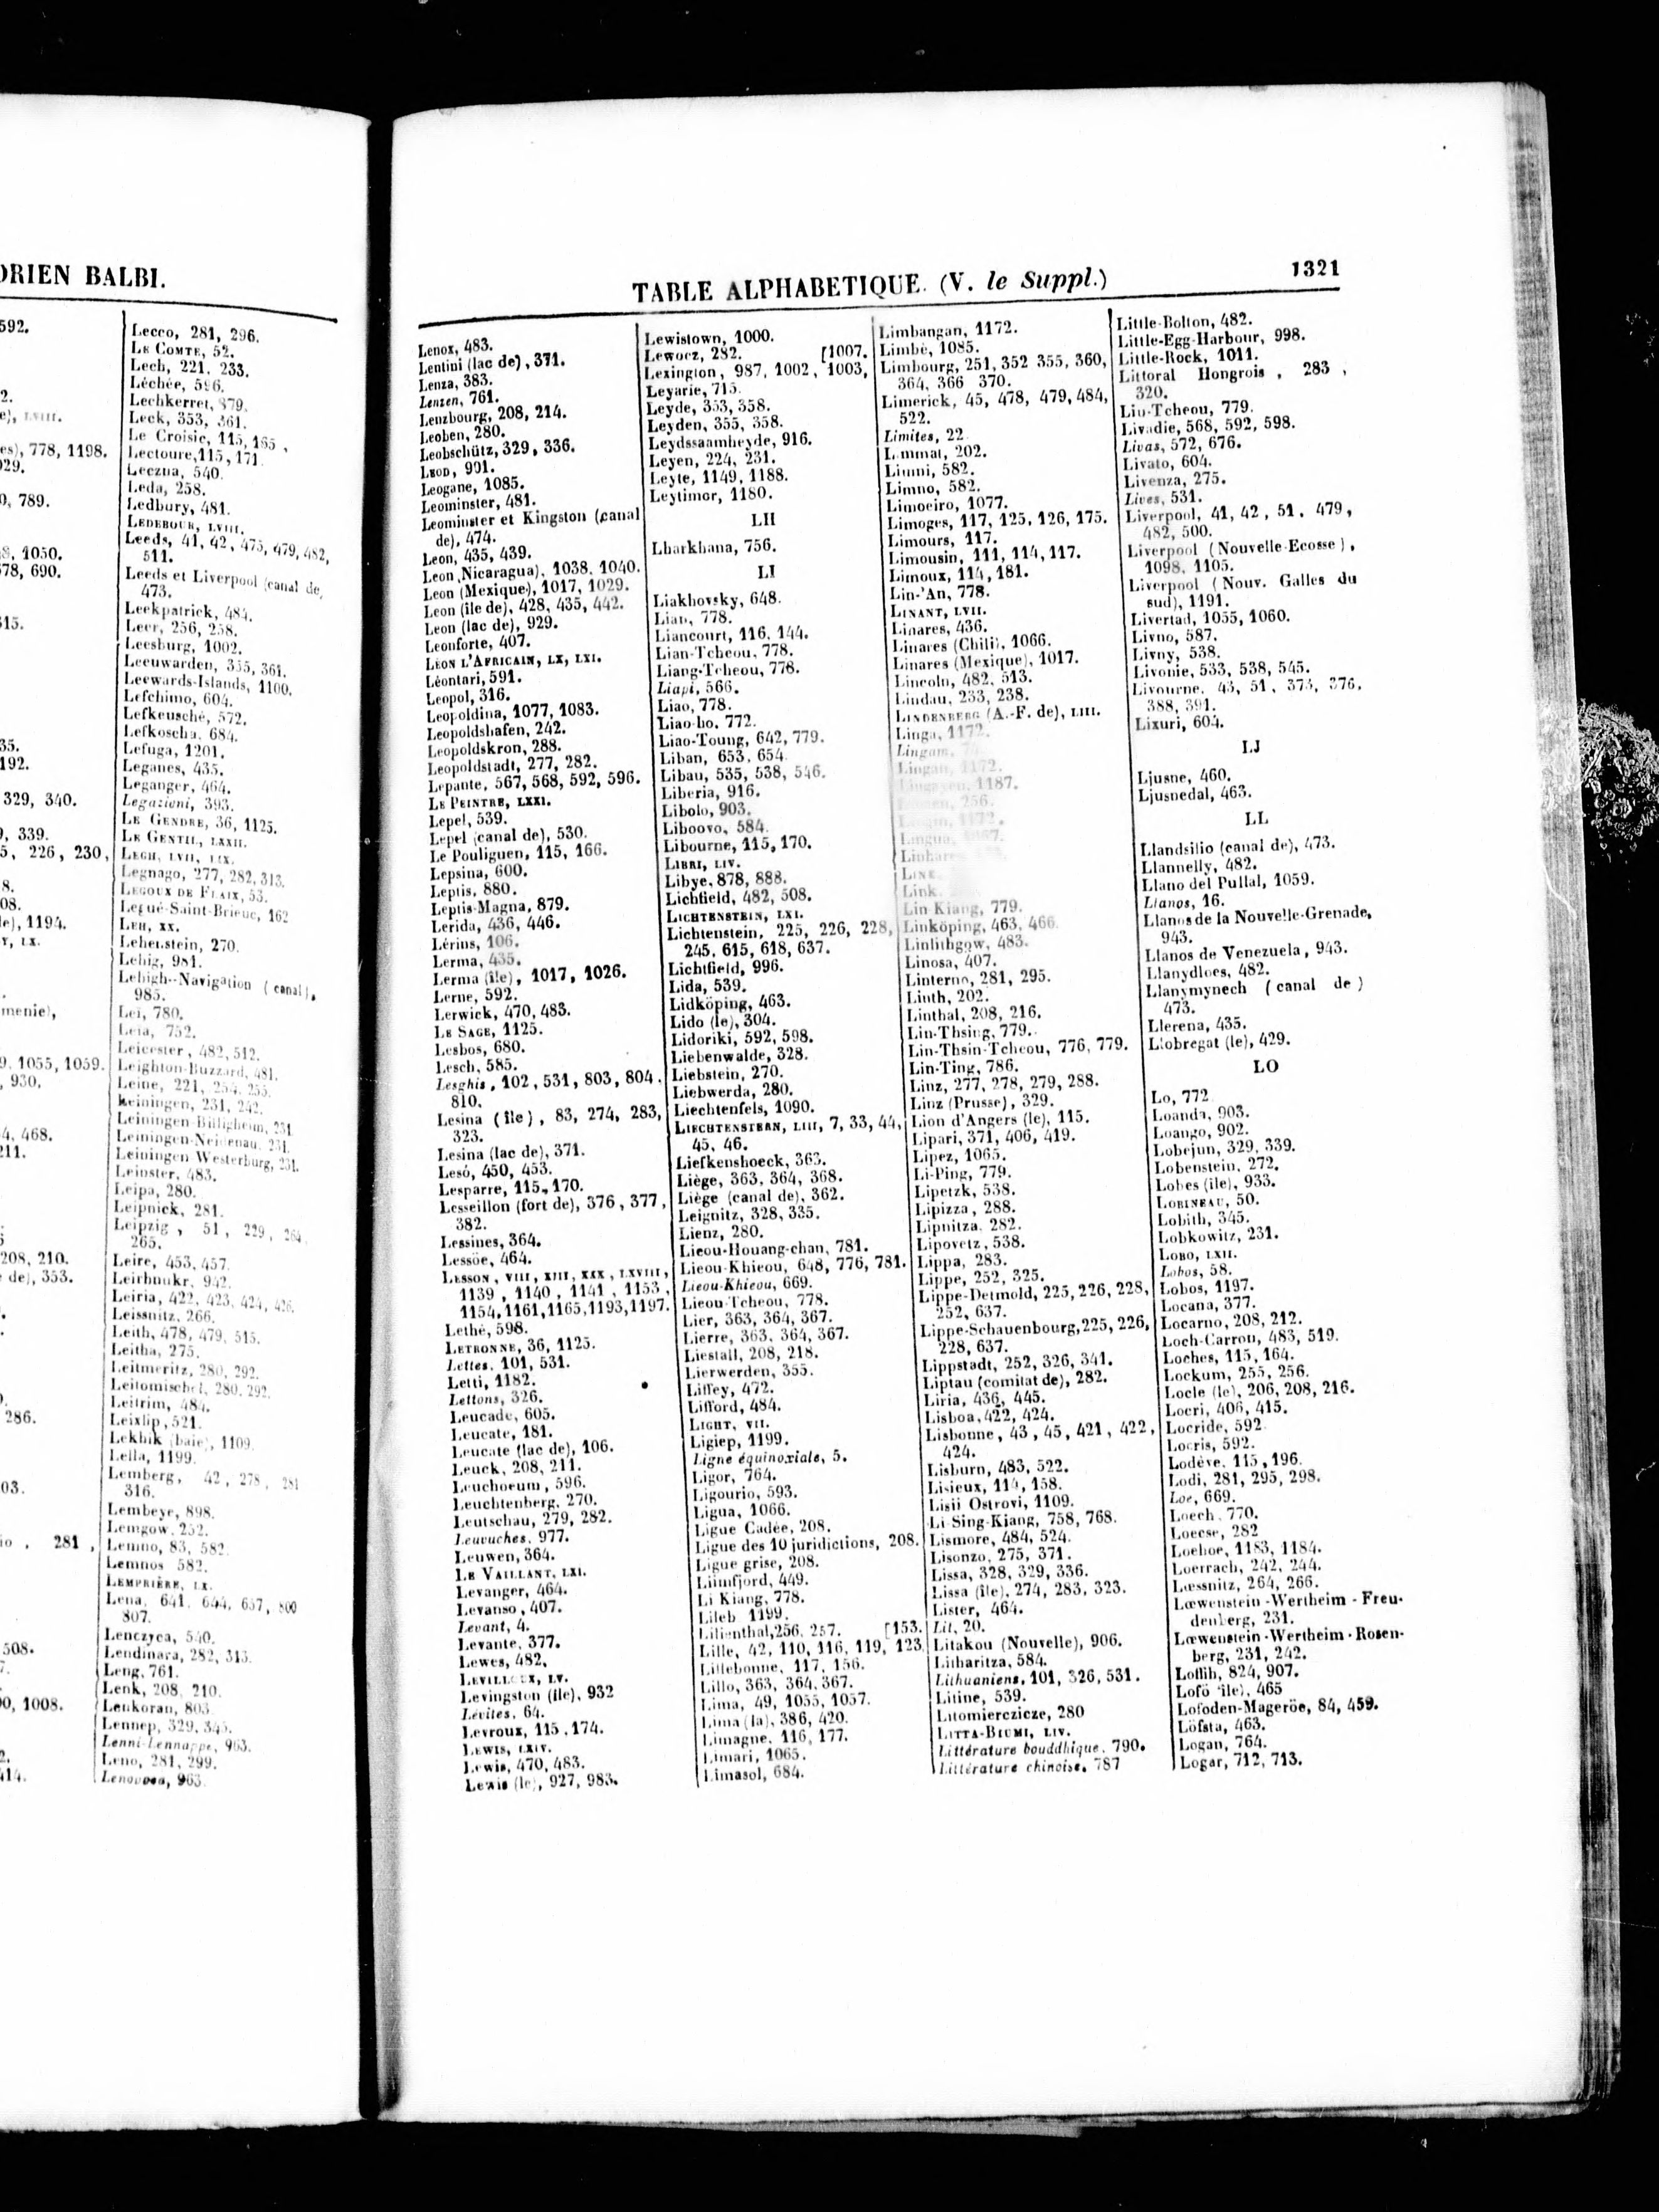 DRIEN BALBI.
592.
2.
e), LVIII.
es), 778, 1198.
929.
0, 789.
8, 1050.
678, 690.
315.
35.
192.
329, 340.
9, 339.
5, 226, 230,
8.
08.
le), 1194.
Y, LX.
menie),
9. 1055, 1059.
, 930.
4, 468.
211.
208, 210.
de), 353.
286.
03.
io , 281 ,
508.
7.
00, 1008.
2.
414.
Lecco, 281, 296.
LE COMTE, 52.
Lech, 221, 233.
Léchée, 596.
Lechkerret, 879.
Leck, 353, 361.
Le Croisic, 115, 165 ,
Lectoure, 115, 171
Leczna, 540.
Leda, 258.
Ledbury, 481.
LEDEBOUR, LVIII.
Leeds, 41, 42, 475, 479, 482,
511.
Leeds et Liverpool (canal de,
473.
Leekpatrick, 484.
Leer, 256, 258.
Leesburg, 1002.
Leeuwarden, 355, 361.
Leewards-Islands, 1100.
Lefchimo, 604.
Lefkeusché, 572.
Lefkoscha, 684.
Lefuga, 1201.
Leganes, 435.
Leganger, 464.
Legazioni, 393.
LE GENDRE, 36, 1125.
LE GENTIL, LXXII.
LEGH, LVII, LIX.
Legnago, 277, 282, 313.
LEGOUX DE FLAIX, 53.
Legué-Saint-Brieuc, 162
LEH, XX.
Lehenstein, 270.
Lehig, 981.
Lehigh--Navigation (canal),
985.
Lei, 780.
Leia, 752.
Leicester, 482, 512.
Leighton-Buzzard, 481.
Leine, 221, 254, 255.
Leiningen, 231, 242.
Leiningen-Billigheim, 231
Leiningen-Neidenau, 231.
Leiningen Westerburg, 231.
Leinster, 483.
Leipa, 280.
Leipnick, 281.
Leipzig , 51, 229, 264,
265.
Leire, 453, 457.
Leirhnukr, 942.
Leiria, 422, 423, 424, 426.
Leissnitz, 266.
Leith, 478, 479, 515.
Leitha, 275.
Leitmeritz, 280, 292.
Leitomischel, 280, 292.
Leitrim, 484.
Leixlip, 521.
Lekbik (baie), 1109.
Lella, 1199.
Lemberg, 42, 278, 281
316.
Lembeye, 898.
Lemgow, 252.
Lemno, 83, 582.
Lemnos 582.
LEMPRIÈRE, LX.
Lena, 641, 644, 657, 800
807.
Lenczyca, 540.
Lendinara, 282, 313.
Leng, 761.
Lenk, 208, 210.
Lenkoran, 803.
Lennep, 329, 345.
Lenni-Lennappe, 963.
Leno, 281, 299.
963
TABLE ALPHABETIQUE. (V. le Suppl.)
1321
Lenox, 483.
Lentini (lac de), 371.
Lenza, 383.
Lenzen, 761.
Lenzbourg, 208, 214.
Leoben, 280.
Leobschütz, 329, 336.
LEOD, 991.
Leogane, 1085.
Leominster, 481.
Leominster et Kingston (canal
de), 474.
Leon, 435, 439.
Leon (Nicaragua), 1038, 1040.
Leon (Mexique), 1017, 1029.
Leon (île de), 428, 435, 442.
Leon (lac de), 929.
Leonforte, 407.
LÉON L'AFRICAIN, LX, LXI.
Léontari, 591.
Leopol, 316.
Leopoldina, 1077, 1083.
Leopoldshafen, 242.
Leopoldskron, 288.
Leopoldstadt, 277, 282.
Lepante, 567, 568, 592, 596.
LE PEINTRE, LXXI.
Lepel, 539.
Lepel (canal de), 530.
Le Pouliguen, 115, 166.
Lepsina, 600.
Leptis, 880.
Leptis-Magna, 879.
Lerida, 436, 446.
Lérins, 106.
Lerma, 435.
Lerma (île), 1017, 1026.
Lerne, 592.
Lerwick, 470, 483.
LE SAGE, 1125.
Lesbos, 680.
Lesch, 585.
Lesghis, 102, 531, 803, 804.
810.
Lesina (île), 83, 274, 283,
323.
Lesina (lac de), 371.
Lesö, 450, 453.
Lesparre, 115, 170.
Lesseillon (fort de), 376, 377,
382.
Lessines, 364.
Lessöe, 464.
LESSON, VIII, XIII, XXX, LXVIII,
1139, 1140, 1141, 1153,
1154, 1161, 1165, 1193, 1197.
Lethé, 598.
LETRONNE, 36, 1125.
Lettes, 101, 531.
Letti, 1182.
Lettons, 326.
Leucade, 605.
Leucate, 181.
Leucate (lac de), 106.
Leuck, 208, 211.
Leuchoeum, 596.
Leuchtenberg, 270.
Leutschau, 279, 282.
Leuvuches, 977.
Leuwen, 364.
LE VAILLANT, LXI.
Levanger, 464.
Levanso, 407.
Levant, 4.
Levante, 377.
Lewes, 482.
LEVILLOUX, LV.
Levingston (île), 932
Lévites, 64.
Levroux, 115, 174.
LEWIS, LXIV.
Lewis, 470, 483.
Lewis (le), 927, 983.
Lewistown, 1000.
Leworz, 282. [1007.
Lexington, 987, 1002, 1003,
Leyarie, 715.
Leyde, 353, 358.
Leyden, 355, 358.
Leydssaamheyde, 916.
Leyen, 224, 231.
Leyte, 1149, 1188.
Leytimor, 1180.
LH
Lharkhana, 756.
LI
Liakhovsky, 648.
Lian, 778.
Liancourt, 116, 144.
Lian-Tcheou, 778.
Liang-Tcheou, 778.
Liapi, 566.
Liao, 778.
Liao-ho, 772.
Liao-Toung, 642, 779.
Liban, 653, 654.
Libau, 535, 538, 546.
Liberia, 916.
Libolo, 903.
Liboovo, 584.
Libourne, 115, 170.
LIBRI, LIV.
Libye, 878, 888.
Lichfield, 482, 508.
LICHTENSTEIN, LXI.
Lichtenstein, 225, 226, 228,
245, 615, 618, 637.
Lichtfield, 996.
Lida, 539.
Lidköping, 463.
Lido (le), 304.
Lidoriki, 592, 598.
Liebenwalde, 328.
Liebstein, 270.
Liebwerda, 280.
Liechtenfels, 1090.
LIECHTENSTERN, LIII, 7, 33, 44,
45, 46.
Liefkenshoeck, 363.
Liège, 363, 364, 368.
Liège (canal de), 362.
Leignitz, 328, 335.
Lienz, 280.
Lieou-Houang-chan, 781.
Lieou-Khieou, 648, 776, 781.
Lieou-Khieou, 669.
Lieou-Tcheou, 778.
Lier, 363, 364, 367.
Lierre, 363, 364, 367.
Liestall, 208, 218.
Lierwerden, 355.
Liffey, 472.
Lifford, 484.
LIGHT, VII.
Ligiep, 1199.
Ligne équinoxiale, 5.
Ligor, 764.
Ligourio, 593.
Ligua, 1066.
Ligue Cadée, 208.
Ligue des 10 juridictions, 208.
Ligue grise, 208.
Liimfjord, 449.
Li Kiang, 778.
Lileb 1199.
Lilienthal, 256, 257. [153.
Lille, 42, 110, 116, 119, 123,
Lillebonne, 117, 156.
Lillo, 363, 364, 367.
Lima, 49, 1055, 1057.
Lima (la), 386, 420.
Limagne, 116, 177.
Limari, 1065.
Limasol, 684.
Limbangan, 1172.
Limbé, 1085.
Limbourg, 251, 352 355, 360,
364, 366 370.
Limerick, 45, 478, 479, 484,
522.
Limites, 22
Limmat, 202.
Limni, 582.
Limno, 582.
Limoeiro, 1077.
Limoges, 117, 125, 126, 175.
Limours, 117.
Limousin, 111, 114, 117.
Limoux, 114, 181.
Lin-'An, 778.
LINANT, LVII.
Linares, 436.
Linares (Chili), 1066.
Linares (Mexique), 1017.
Lincoln, 482, 513.
Lindau, 233, 238.
LINDENBERG (A.-F. de), LIII.
Linga, 1172.
Lingam,
Lingan, 1172.
1187.
256.
1172.
Linhares
LINK
Link.
Lin-Kiang, 779.
Linköping, 463, 466.
Linlithgow, 483.
Linosa, 407.
Linterno, 281, 295.
Linth, 202.
Linthal, 208, 216.
Lin-Thsing, 779.
Lin-Thsin-Tcheou, 776, 779.
Lin-Ting, 786.
Linz, 277, 278, 279, 288.
Linz (Prusse), 329.
Lion d'Angers (le), 115.
Lipari, 371, 406, 419.
Lipez, 1065.
Li-Ping, 779.
Lipetzk, 538.
Lipizza, 288.
Lipnitza, 282.
Lipovetz, 538.
Lippa, 283.
Lippe, 252, 325.
Lippe-Detmold, 225, 226, 228,
252, 637.
Lippe-Schauenbourg, 225, 226,
228, 637.
Lippstadt, 252, 326, 341.
Liptau (comitat de), 282.
Liria, 436, 445.
Lisboa, 422, 424.
Lisbonne, 43, 45, 421, 422,
424.
Lisburn, 483, 522.
Lisieux, 114, 158.
Lisii Ostrovi, 1109.
Li Sing-Kiang, 758, 768.
Lismore, 484, 524.
Lisonzo, 275, 371.
Lissa, 328, 329, 336.
Lissa (île), 274, 283, 323.
Lister, 464.
Lit, 20.
Litakou (Nouvelle), 906.
Litharitza, 584.
Lithuaniens, 101, 326, 531.
Litine, 539.
Litomierczicze, 280
LITTA-BIUMI, LIV.
Littérature bouddhique, 790.
Littérature chinoise, 787
Little-Bolton, 482.
Little-Egg-Harbour, 998.
Little-Rock, 1011.
Littoral Hongrois , 283 ,
320.
Liu-Tcheou, 779.
Livadie, 568, 592, 598.
Livas, 572, 676.
Livato, 604.
Livenza, 275.
Lives, 531.
Liverpool, 41, 42, 51, 479,
482, 500.
Liverpool (Nouvelle-Ecosse),
1098, 1105.
Liverpool (Nouv. Galles du
sud), 1191.
Livertad, 1055, 1060.
Livno, 587.
Livny, 538.
Livonie, 533, 538, 545.
Livourne, 43, 51, 373, 376,
388, 391.
Lixuri, 604.
LJ
Ljusne, 460.
Ljusnedal, 463.
LL
Llandsilio (canal de), 473.
Llannelly, 482.
Llano del Pullal, 1059.
Llanos, 16.
Llanos de la Nouvelle-Grenade,
943.
Llanos de Venezuela, 943.
Llanydloes, 482.
Llanymynech (canal de)
473.
Llerena, 435.
Llobregat (le), 429.
LO
Lo, 772
Loanda, 903.
Loango, 902.
Lobejun, 329, 339.
Lobenstein, 272.
Lobes (île), 933.
LOBINEAU, 50.
Lobith, 345.
Lobkowitz, 231.
LOBO, LXII.
Lobos, 58.
Lobos, 1197.
Locana, 377.
Locarno, 208, 212.
Loch-Carron, 483, 519.
Loches, 115, 164.
Lockum, 255, 256.
Locle (le), 206, 208, 216.
Locri, 406, 415.
Locride, 592.
Locris, 592.
Lodève, 115, 196.
Lodi, 281, 295, 298.
Loe, 669.
Loech, 770.
Loecse, 282
Loehoe, 1183, 1184.
Loerrach, 242, 244.
Lœssnitz, 264, 266.
Lœwenstein-Wertheim-Freu-
denberg, 231.
Lœwenstein-Wertheim-Rosen-
berg, 231, 242.
Loffih, 824, 907.
Lofö (île), 465
Lofoden-Mageröe, 84, 459.
Löfsta, 463.
Logan, 764.
Logar, 712, 713.